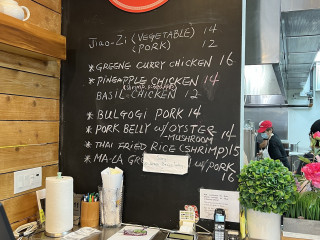 Jiao-Zi (VEGETABLE) 14
(PORK) 12
* GREENE CURRY CHICKEN 16
* PINEAPPLE CHICKEN 14
BASIL CHICKEN 12
* BULGOGI PORK 14
* PORK BELLY W/OYSTER
MUSHROOM 14
* THAI FRIED RICE (SHRIMP) 15
* MA-LA W/ PORK
16